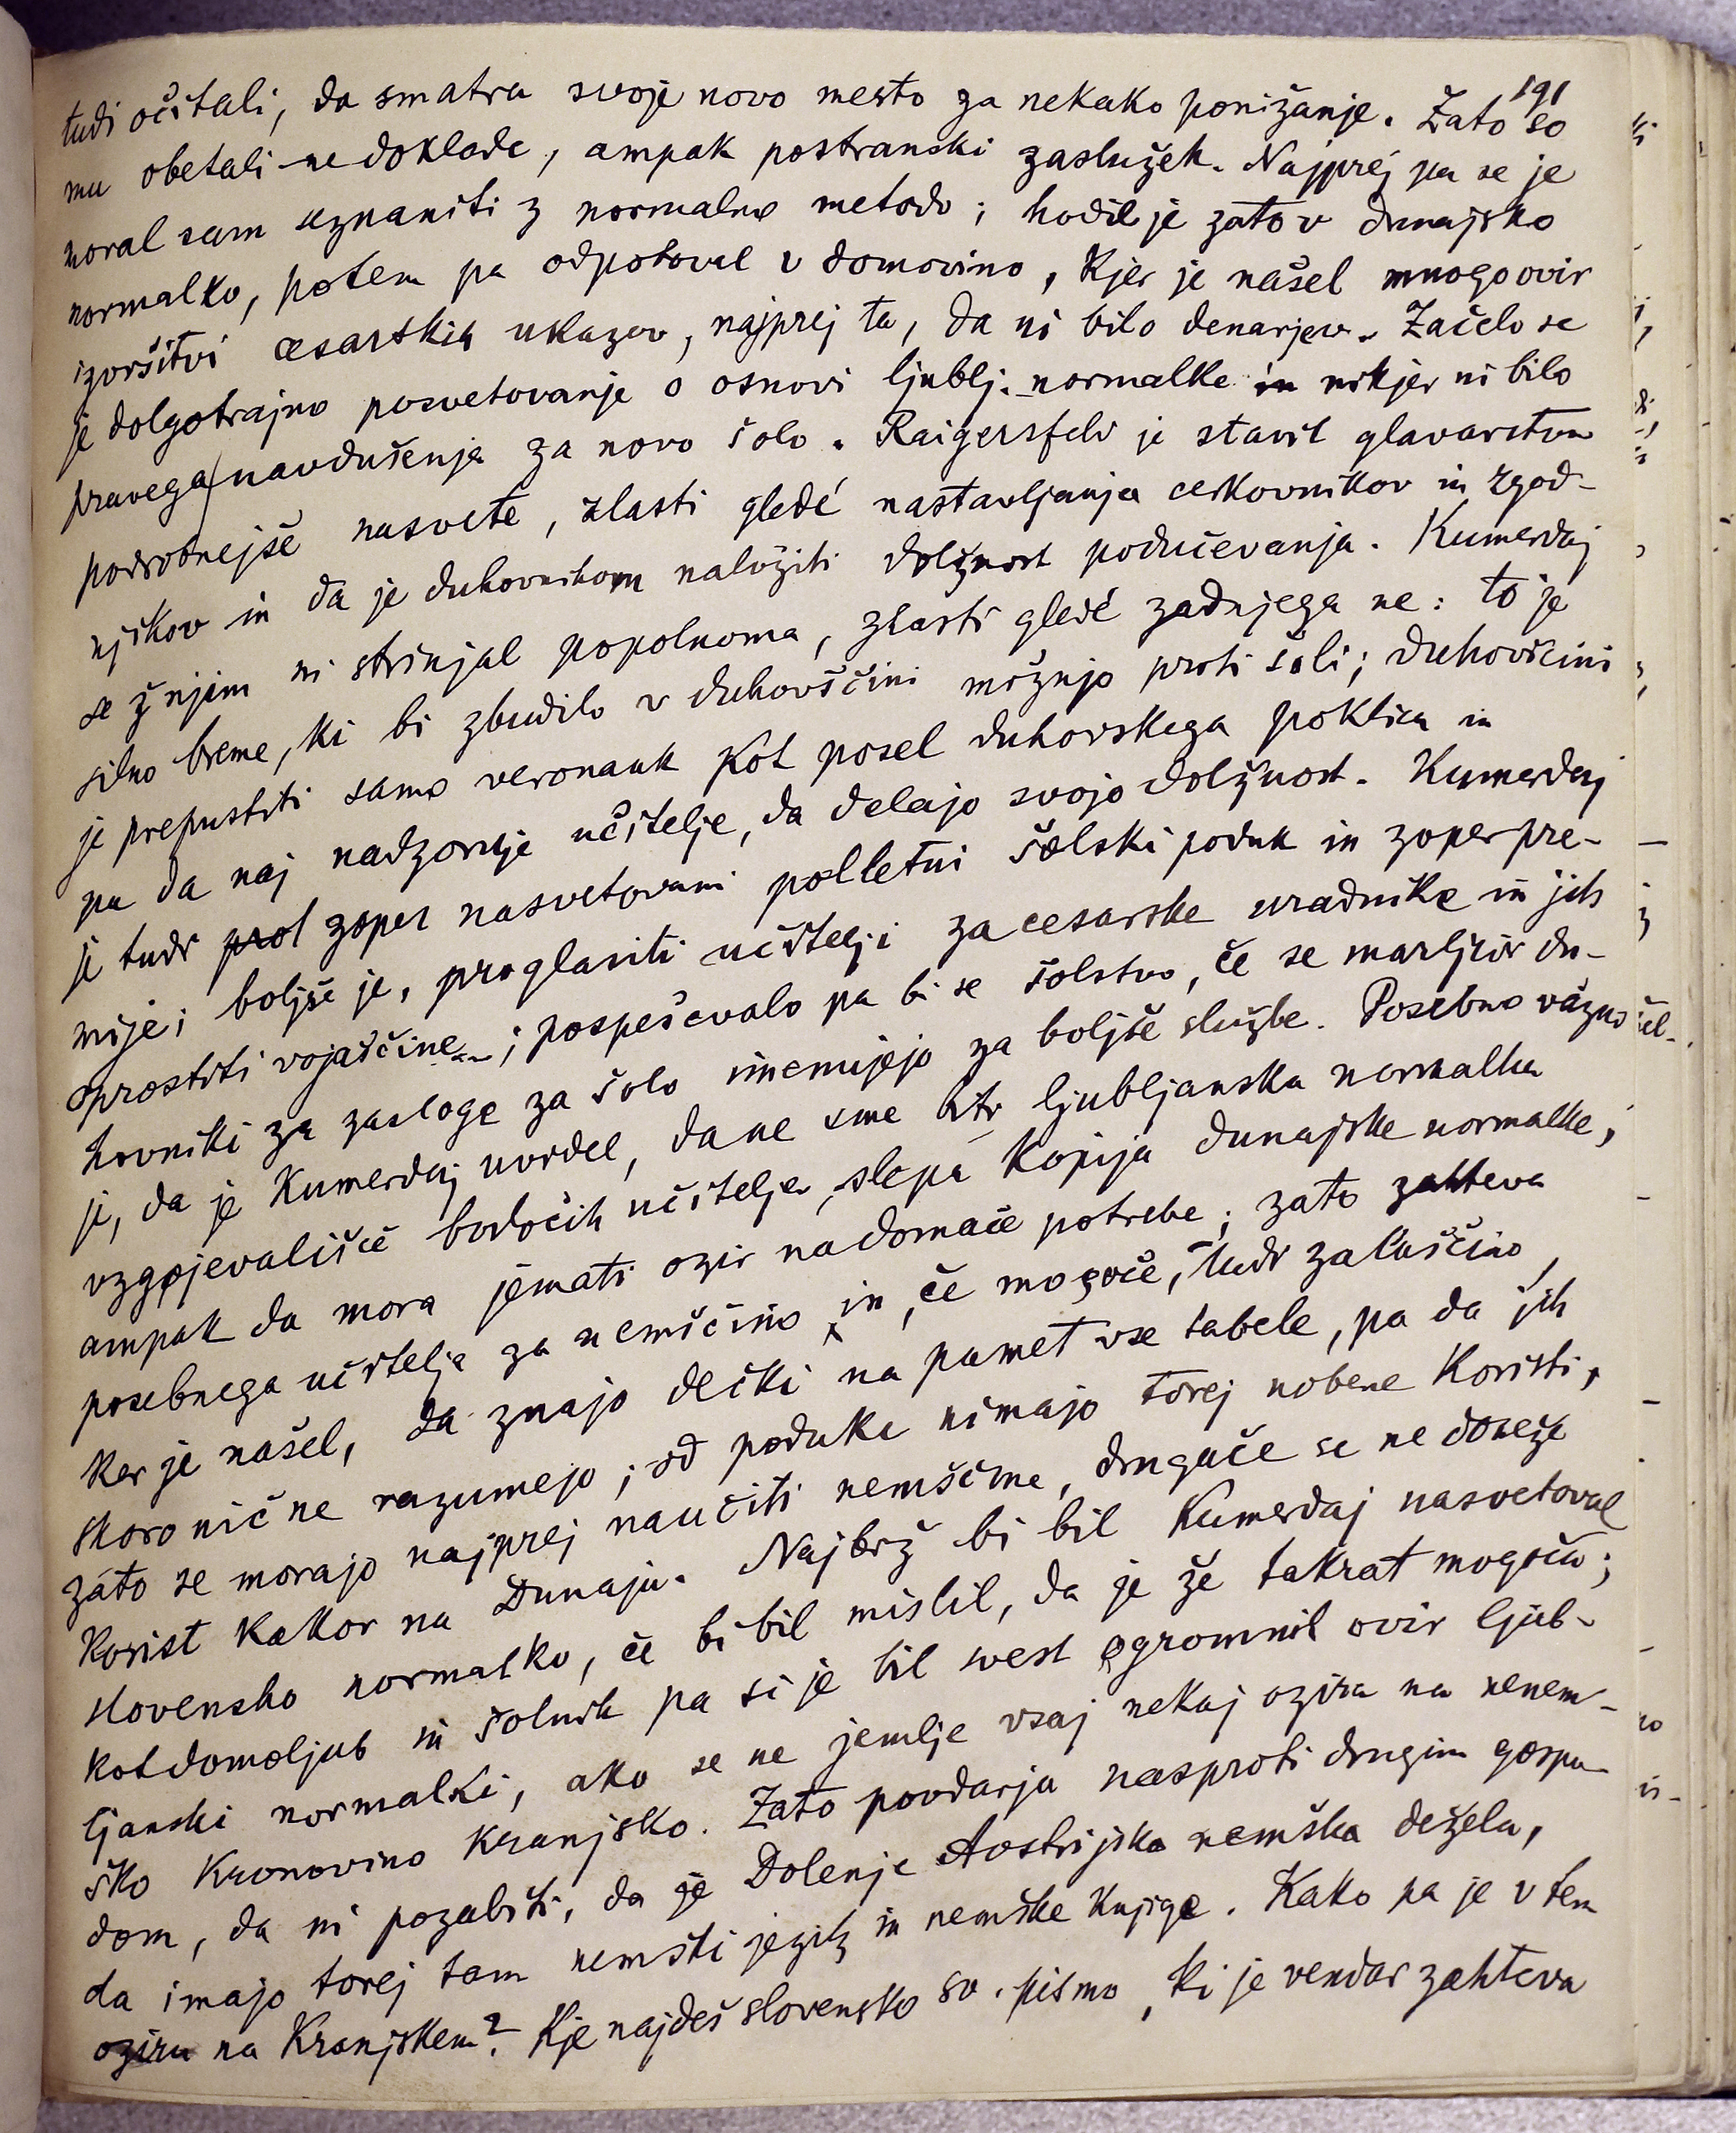 191
tudi očitali, da smatra svoje novo mesto za nekako ponižanje. Zato so
mu obetali ne doklade, ampak postranski zaslužek. Najprej pa se je
moral sam seznaniti z normalno metodo; hodil je zato v dunajsko
normalko, potem pa odpotoval v domovino, kjer je našel mnogo ovir
izvršitvi cesarskih ukazov, najprej ta, da ni bilo denarjev. Začelo se
je dolgotrajno posvetovanje o osnovi ljublj. normalke in nikjer ni bilo
pravega navdušenja za novo šolo. Raigersfeld je stavil glavarstvu
podrobnejše nasvete, zlasti gledé nastavljanja cerkovnikov in zgod-
njikov in da je duhovnikom naložiti dolžnost podučevanja. Kumerdaj
se ž njim ni strinjal popolnoma, zlasti gledé zadnjega ne: to je
silno breme, ki bi zbudilo v duhovščini mržnjo proti šoli; duhovščini
je prepustiti samo veronauk kot posel duhovskega poklica in
pa da naj nadzoruje učitelje, da delajo svojo dolžnost. Kumerdaj
je tudi prot zoper nasvetovani polletni šolski poduk in zoper pre-
mije; boljše je, proglasiti učitelji za cesarske uradnike in jih
oprostiti vojaščine; pospeševalo pa bi se šolstvo, če se marljivi du-
hovniki za zasloge za šolo imenujejo za boljše službe. Posebno važno
je, da je Kumerdaj uvidel, da ne sme biti ljubljanska normalka
vzgojevališče bodočih učiteljev, slepa kopija dunajske normalke,
ampak da mora jemati ozir na domače potrebe; zato zahteva
posebnega učitelja za nemščino in, če mogoče, tudi za laščino,
ker je našel, da znajo dečki na pamet vse tabele, pa da jih
skoro nič ne razumejo; od poduka nimajo torej nobene koristi,
zato se morajo najprej naučiti nemščine, drugače se ne doseže
korist kakor na Dunaju. Najbrž bi bil Kumerdaj nasvetoval
slovensko normalko, če bi bil mislil, da je že takrat mogoča;
kot domoljub in šolnik pa si je bil svest ogromnih ovir ljub-
ljanski normalki, ako se ne jemlje vsaj nekaj ozira na nenem-
ško kronovino Kranjsko. Zato povdarja nasproti drugim gospo-
dom, da ni pozabiti, da je Dolenje Avstrijska nemška dežela,
da imajo torej tam nemški jezik in nemške knjige. Kako pa je v tem
oziru na Kranjskem? Kje najdeš slovensko sv. pismo, ki je vendar zahteva